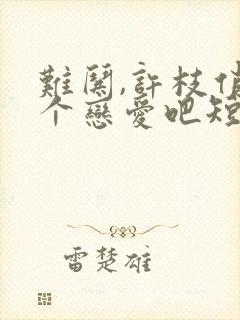 難關,許枝俏
个戀愛吧短
雷楚雄